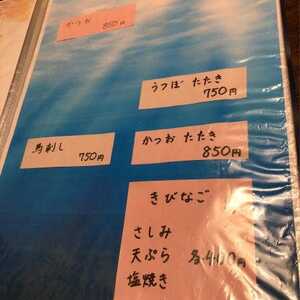 かつお
850円
うつぼ たたき
750円
馬刺し
750円
かつお たたき
850円
きびなご
さしみ
天ぷら 各400円
塩焼き